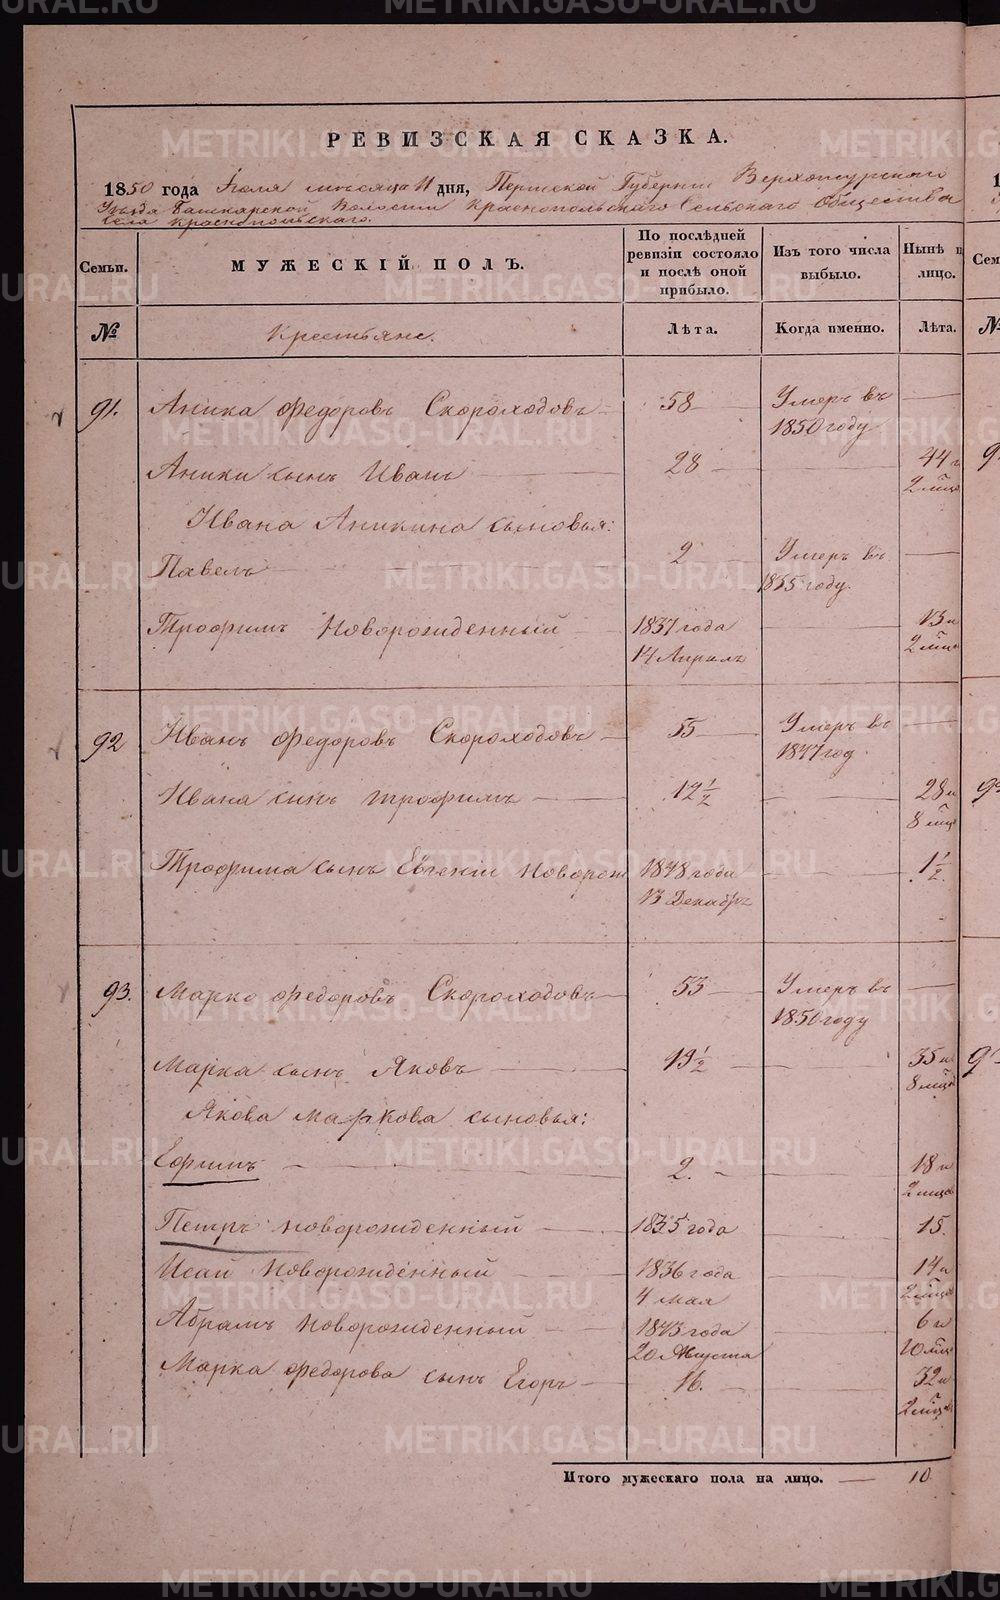 РЕВИЗСКАЯ СКАЗКА.
1850 года Іюля мѣсяца 11 дня, Пермской Губерніи Верхотурскаго
Уѣзда Башкарской Волости Краснопольскаго Сельскаго Общества
села Краснопольскаго.
Семьи. МУЖЕСКІЙ ПОЛЪ. По послѣдней ревизіи состояло и послѣ оной прибыло. Изъ того числа выбыло. Нынѣ н лицо.
№ Крестьяне. Лѣта. Когда именно. Лѣта.
91. Аника Федоровъ Скороходовъ 58 Умеръ въ 1850 году
Аники сынъ Иванъ 28 44 и 2 мѣсц
Ивана Аникина сыновья:
Павелъ 2 Умеръ въ 1835 году.
Трофимъ Новорожденный 1837 года 14 Апрѣль 13 и 2 мѣс
92 Иванъ Федоровъ Скороходовъ 55 Умеръ въ 1847 год.
Ивана сынъ Трофимъ 12 1/2 28 и 8 мѣц
Трофима сынъ Евгеній новорож 1848 года 13 Декабрь 1 1/2.
93. Марко Федоровъ Скороходовъ 53 Умеръ въ 1850 году
Марка сынъ Яковъ 19 1/2 35 и 8 мѣца
Якова Маркова сыновья:
Ефимъ 2. 18 и 2 мѣца
Петръ новорожденный 1835 года 15.
Исай Новорожденный 1836 года 4 мая 14 и 2 мѣца
Абрамъ новорожденный 1843 года 20 Августа 6 и 10 мѣц
Марка Федорова сынъ Егоръ 16. 32 и 2 мѣца
Итого мужескаго пола на лицо. 10
METRIKI.GASO-URAL.RU